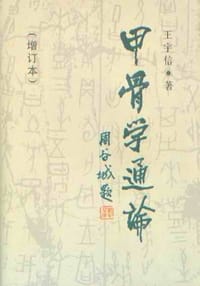 甲骨学通論
(增订本)
王宇信 著
周谷城题